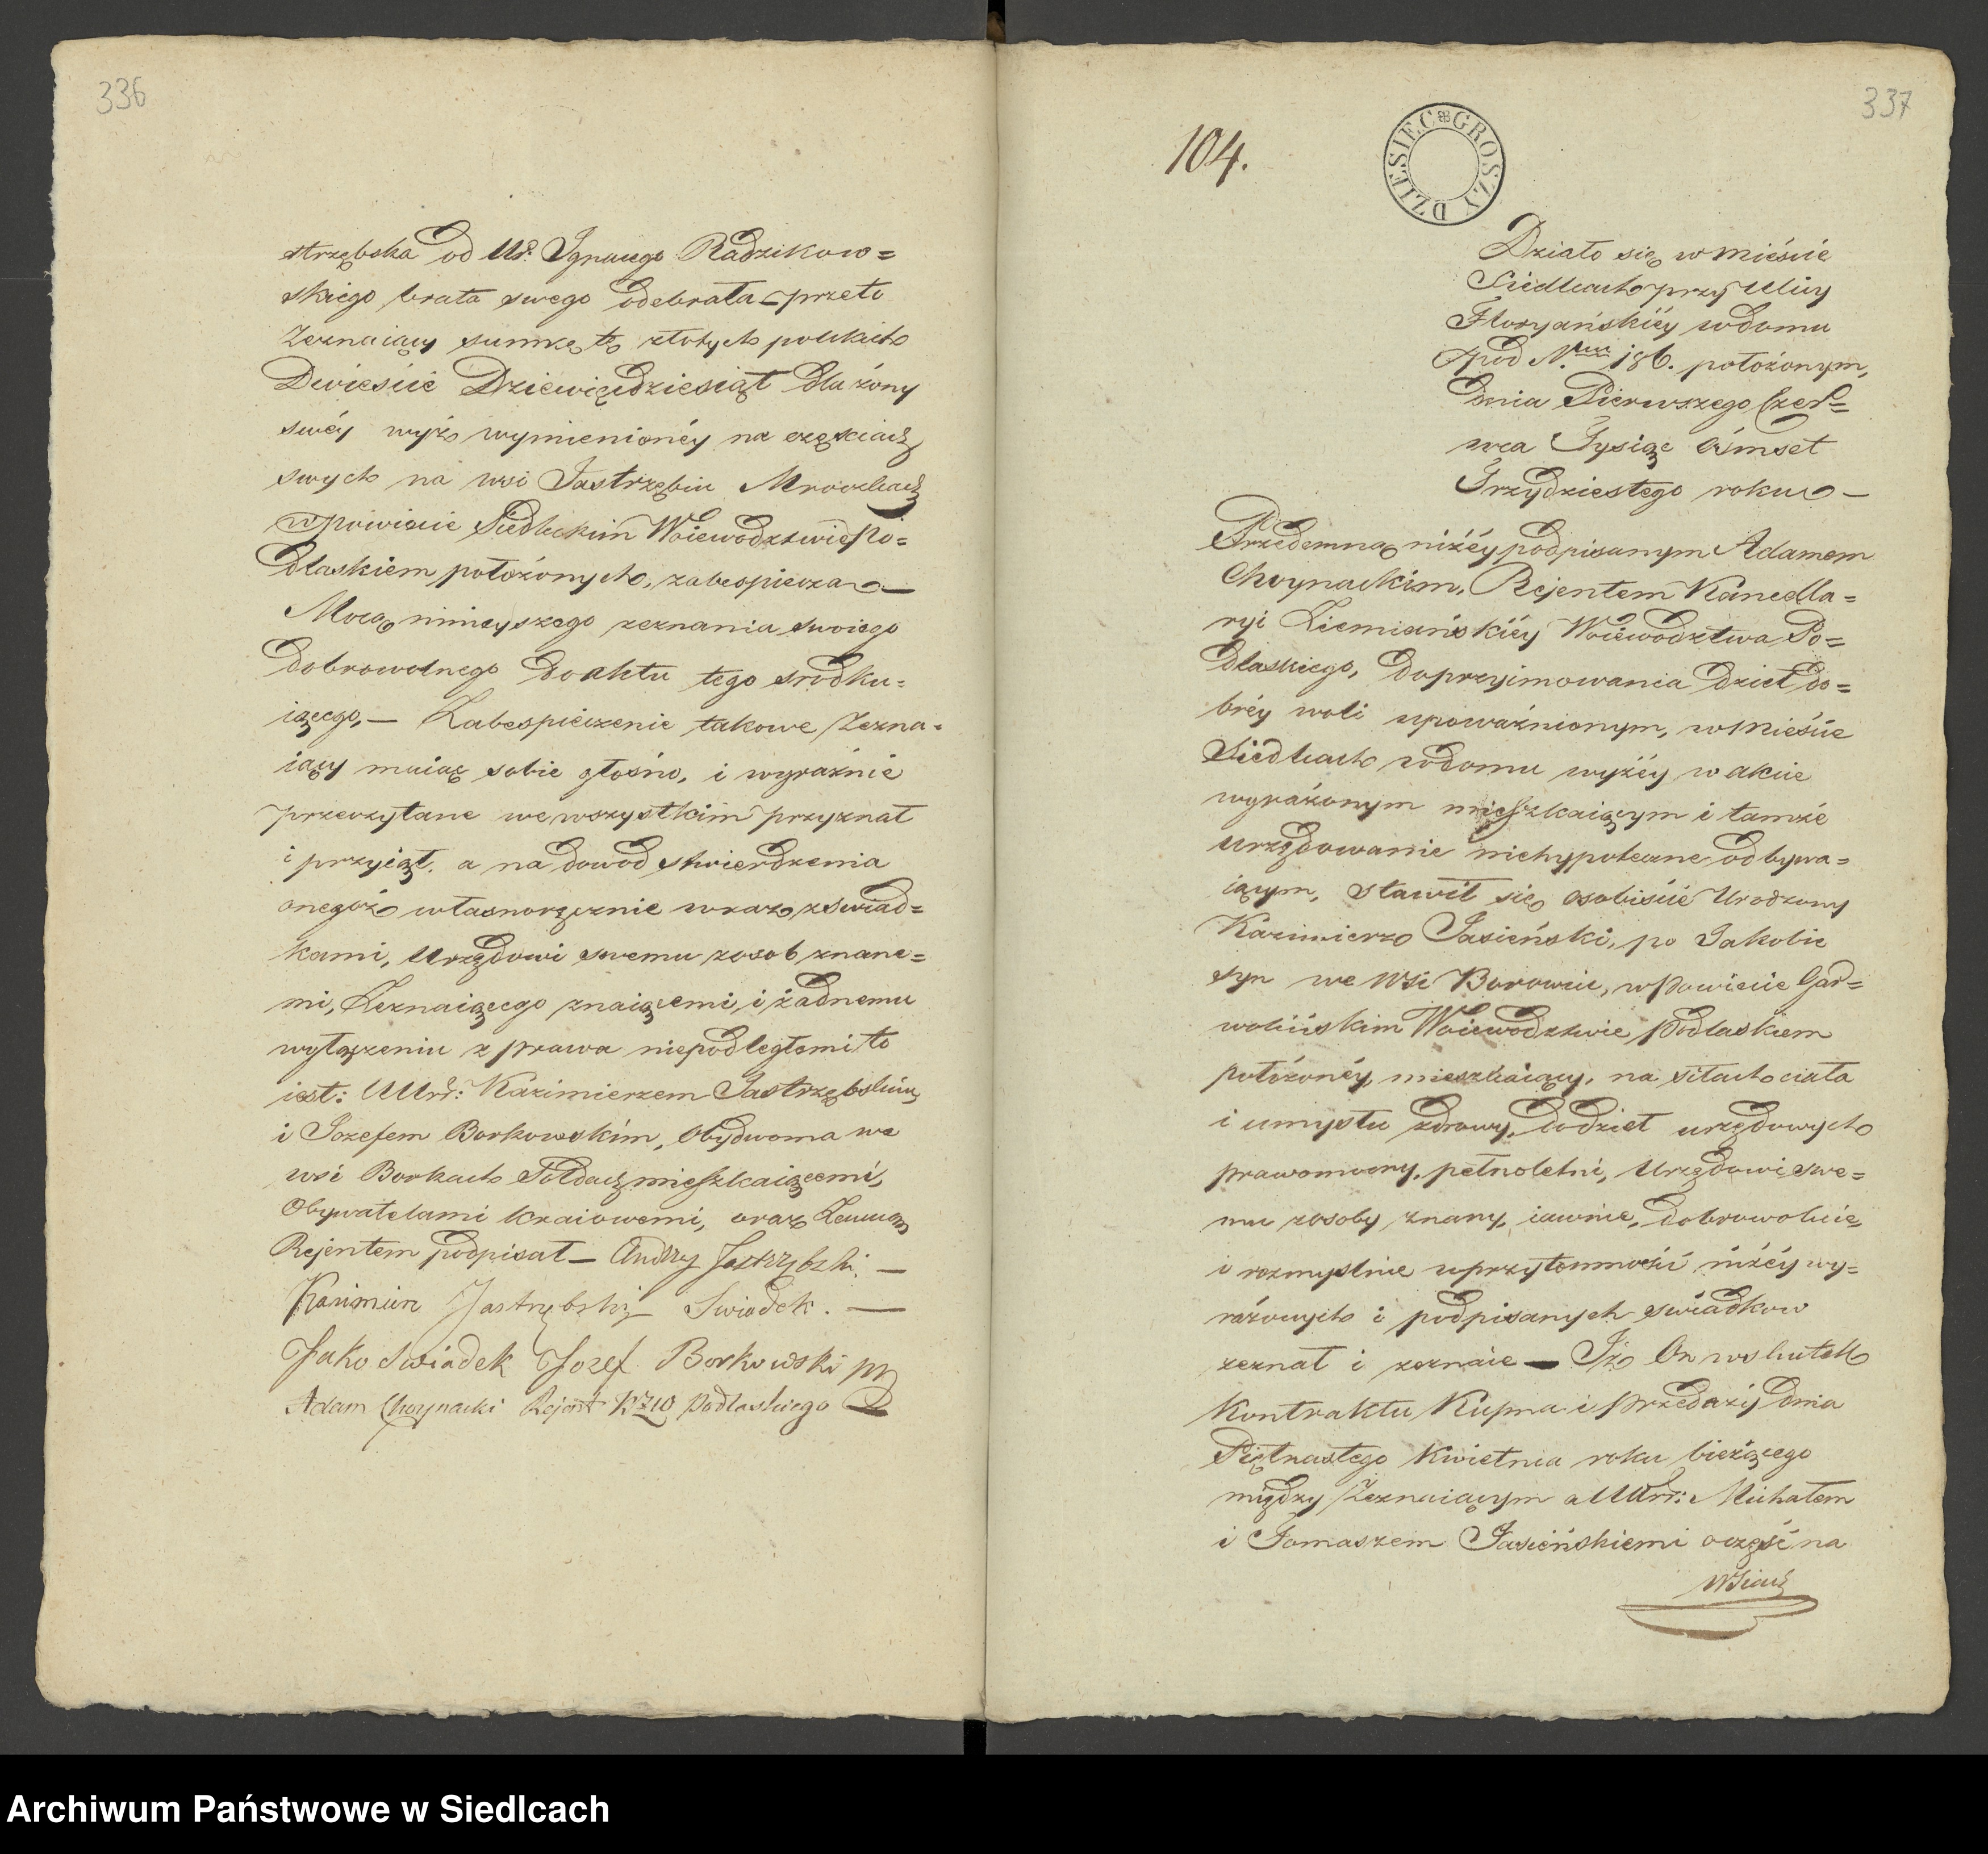 336
strzębska od Ur. Ignacego Radzikow=
skiego brata swego odebrała – przeto
Zeznaiący summę tę złotych polskich
Dwieście Dziewięćdziesiąt dla żony
swéy wyż wymienionéy na częściach
swych na wsi Jastrzębiu Mroczkach
w powiecie Siedleckim Woiewodztwie Po=
dlaskiem położonych, zabespiecza —
Mocą ninieyszego zeznania swoiego
dobrowolnego do aktu tego srodku=
iącego, — Zabespieczenie takowe Zezna=
iący maiąc sobie głośno, i wyraźnie
przeczytane we wszystkim przyznał
i przyiął, a na dowod stwierdzenia
onegoż własnoręcznie wraz z swiad=
kami, Urzędowi swemu z osob znane=
mi, Zeznaiącego znaiącemi, i żadnemu
wyłączeniu z prawa niepodległemi to
iest: UUrr: Kazimierzem Jastrzębskim
i Jozefem Borkowskim, Obydwoma we
wsi Borkach Sołdach mieszkaiącemi,
Obywatelami kraiowemi, oraz Zemną
Rejentem podpisał — Andrzy Jastrzybski. —
Kazimierz Jastrzębski Swiadek. —
Jako Swiadek Jozef Borkowski
Adam Choynacki Rejent Podlaskiego
337
104.
DZIESIĘĆ GROSZY
Działo się w Mieście
Siedlcach przy Ulicy
Floryańskiéy w domu
pod N.rem 186. położonym,
dnia Pierwszego Czer=
wca Tysiąc Ośmset
Trzydziestego roku —
Przedemną niżéy podpisanym Adamem
Choynackim, Rejentem Kancella=
ryi Ziemiańskiéy Woiewodztwa Po=
dlaskiego, do przyimowania dzieł do=
bréy woli upoważnionym, w Mieście
Siedlcach w domu wyżéy w akcie
wyrażonym mieszkaiącym i tamże
urzędowanie niehypoteczne odbywa=
iącym, stawił się osobiście Urodzony
Kazimierz Jasieński, po Jakobie
syn we Wsi Borowiu, w Powiecie Gar=
wolińskim Woiewodztwie Podlaskiem
położonéy, mieszkaiący, na siłach ciała
i umysłu zdrowy, do dzieł urzędowych
prawomocny, pełnoletni, Urzędowi swe=
mu z osoby znany, iawnie, dobrowolnie
i rozmyślnie w przytomności niżéy wy=
rażonych i podpisanych swiadkow
zeznał i zeznaie — Iż On w skutek
Kontraktu Kupna i Przedaży dnia
Piętnastego Kwietnia roku bieżącego
między Zeznaiącym a UUrr: Michałem
i Tomaszem Jasieńskiemi o część na
Wsiach
Archiwum Państwowe w Siedlcach